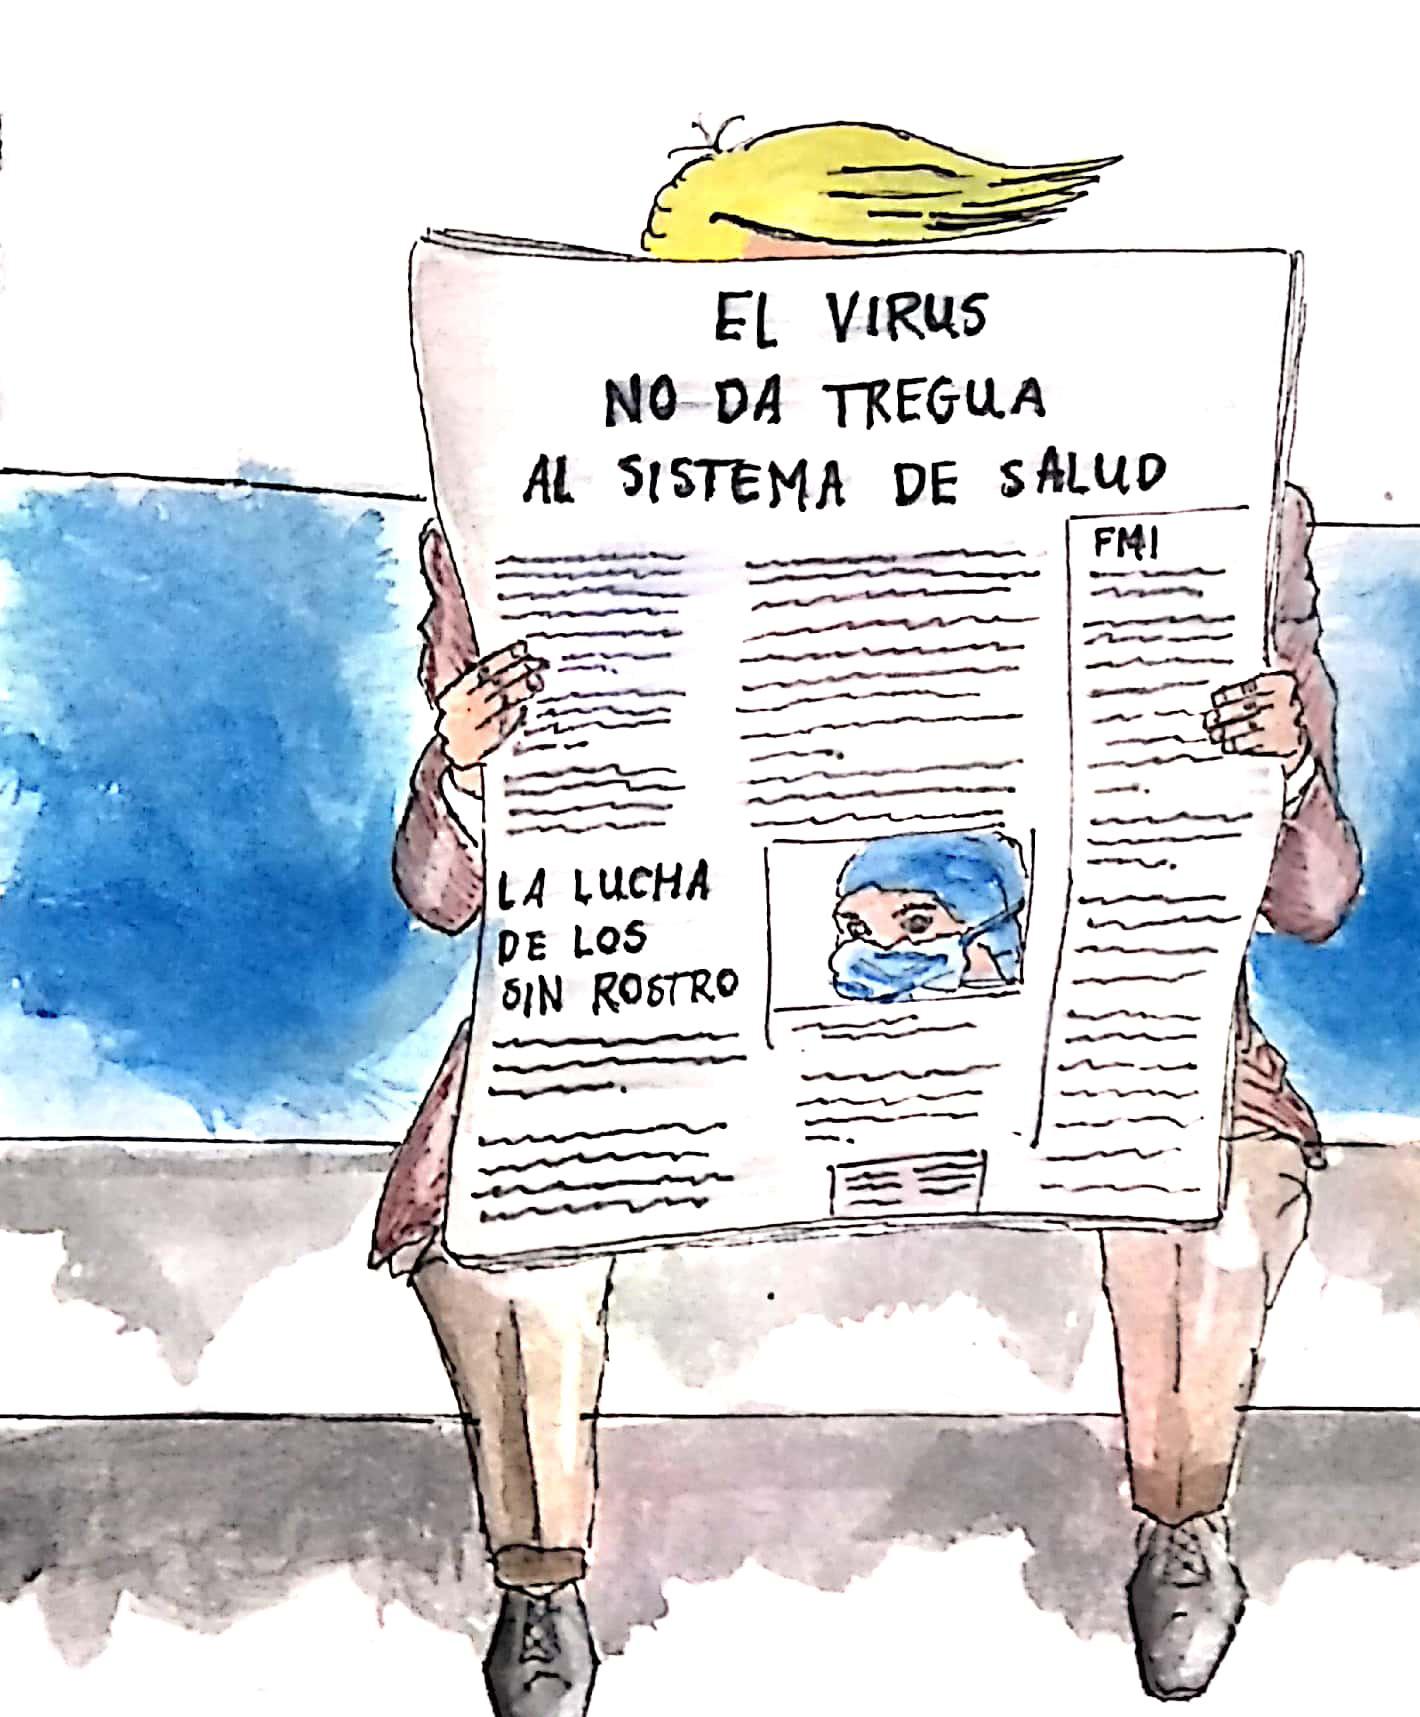 EL VIRUS
NO DA TREGUA
AL SISTEMA DE SALUD
FMI
LA LUCHA
DE LOS
SIN ROSTRO